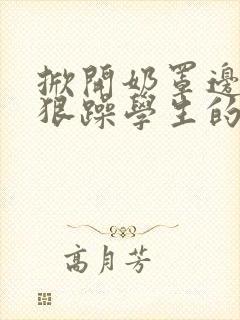 掀開奶罩邊
狠躁學生的
高月芳